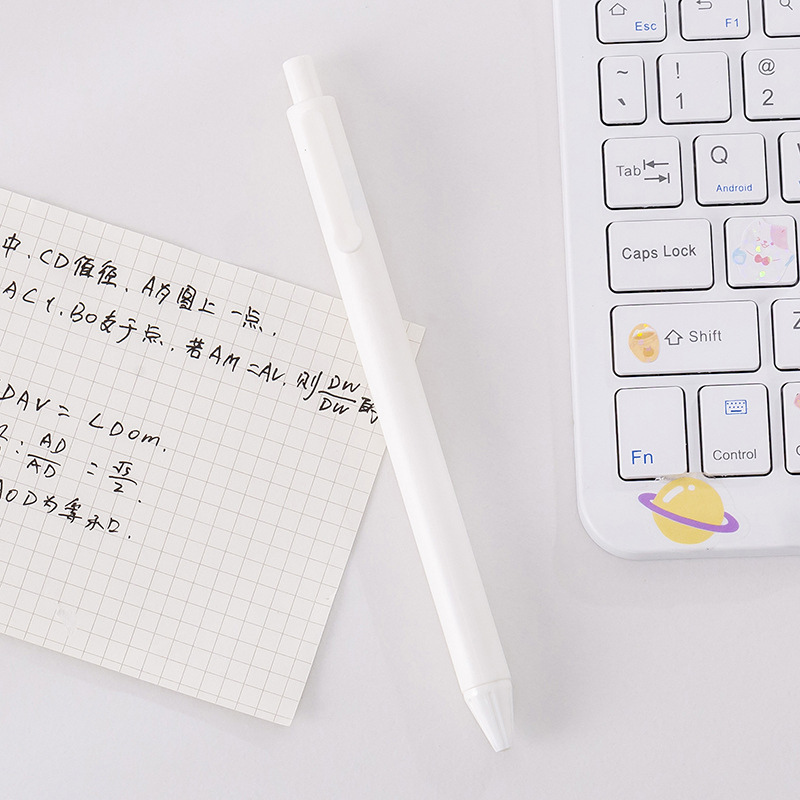 中、CD值径、A为图上一点.
AC1.BO支于点.若AM=AV.则DW/DW的
DAV=∠DOM.
:AD/AD=√5/2.
AOD为等
Esc
F1
~ ` ! 1 @ 2
Tab Q Android
Caps Lock
Shift Z
Fn Control